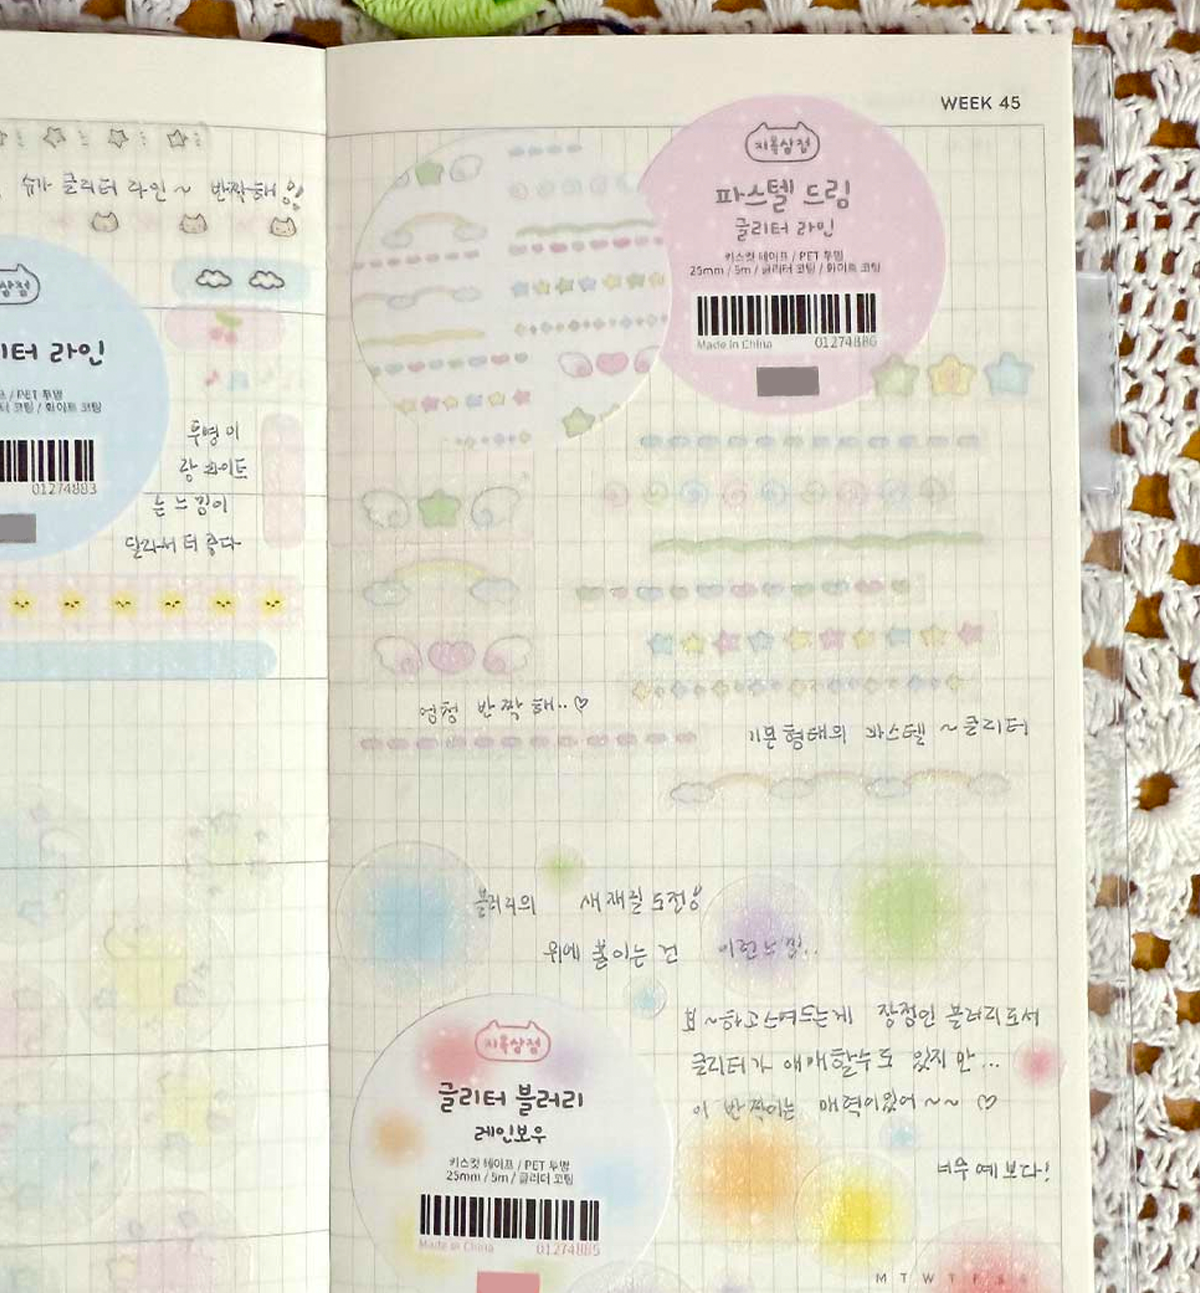 슈가 글리터 라인 ~ 반짝해
상점
터 라인
/ PET 투명
터 코팅 / 화이트 코팅
01274883
투명이
랑 화이트
는 느낌이
달라서 더 좋다
WEEK 45
지복상점
파스텔 드림
글리터 라인
키스컷 테이프 / PET 투명
25mm / 5m / 글리터 코팅 / 화이트 코팅
Made in China 01274886
엄청 반짝해..♡
기본 형태의 파스텔 ~ 글리터
블러리의 새 재질 도전
위에 붙이는 건 이런 느낌!..
장점인 블러리로서
글리터가 애매할수도 있지만...
이 반짝이는 매력이있어 ~~ ♡
너무 예쁘다!
지복상점
글리터 블러리
레인보우
키스컷 테이프 / PET 투명
25mm / 5m / 글리터 코팅
Made in China 01274885
M T W T F S S